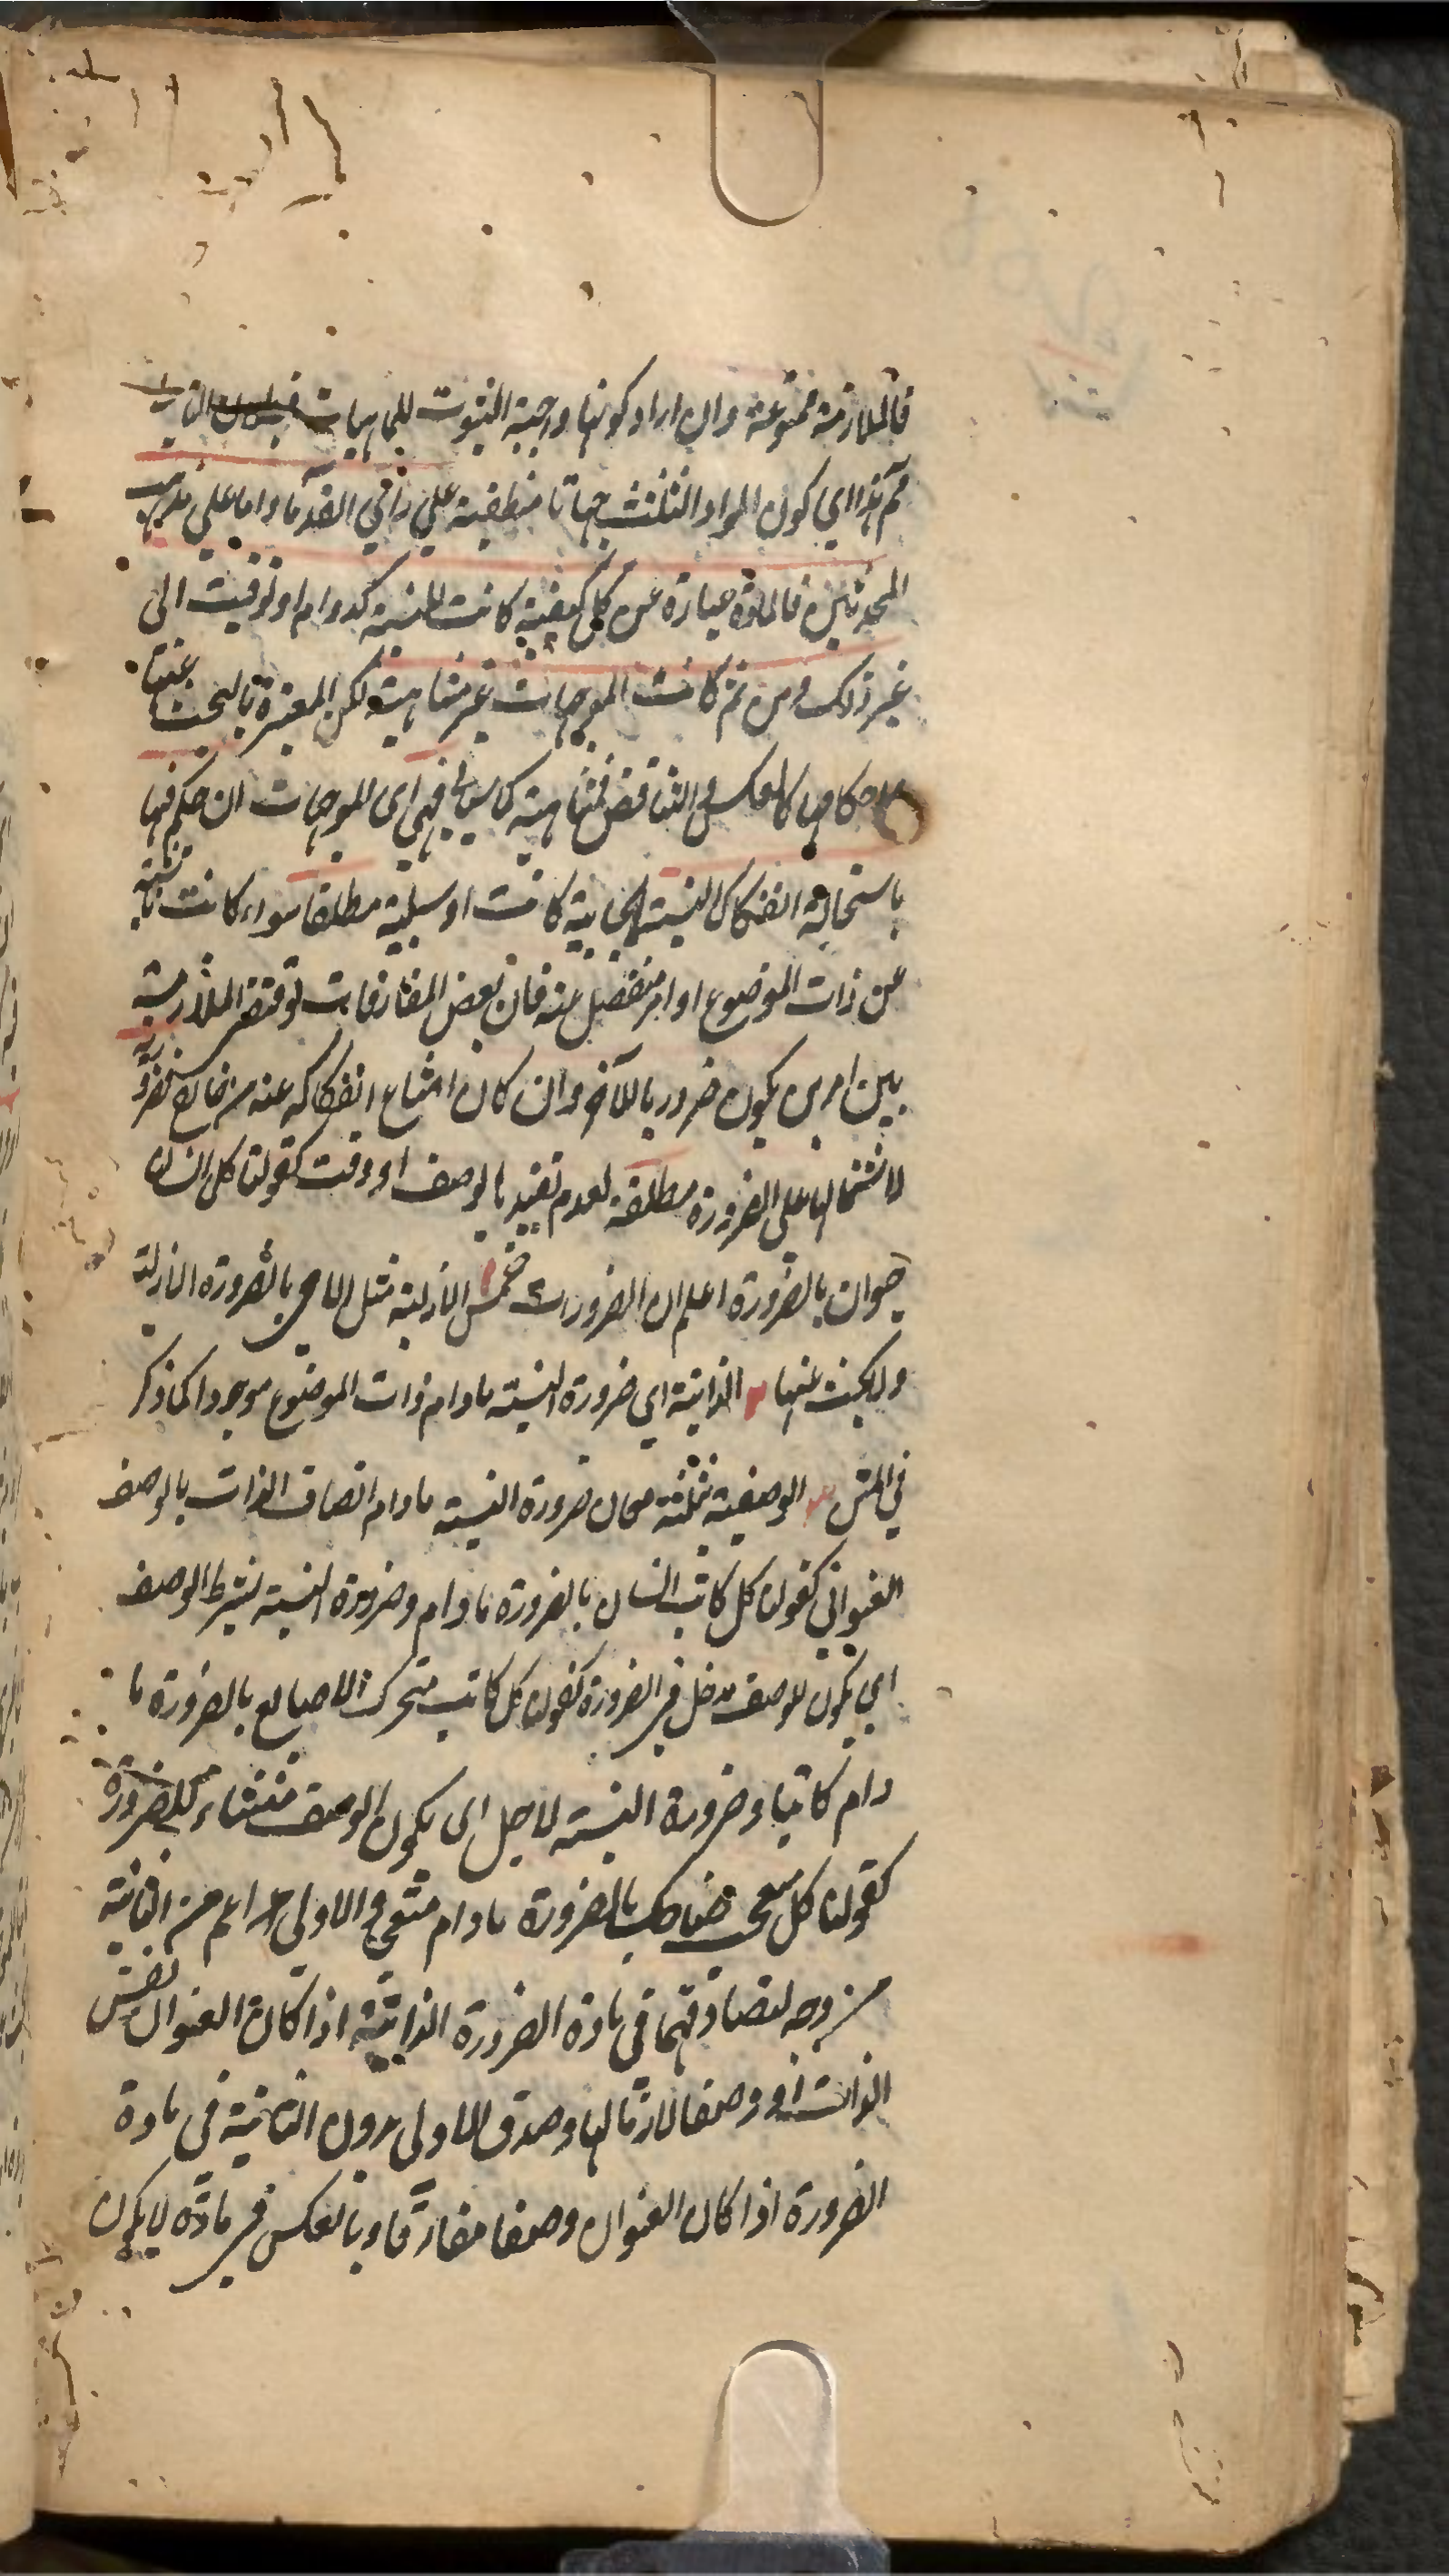 فالملازمة ممنوعة وان اراد كونها واجبة الثبوت للماهيات فبطلان التالى
ثم هذا اي كون المواد الثلث جهاتا منطقية علي راي القدماء واما علي مذهب
المحدثين فالمادة عبارة عن كل كيفية كانت للنسبة كدوام او توقيت الى
غير ذلك ومن ثم كانت الموجهات غير متناهية لكن المعتبرة بالبحث عنها
باحكامها كالعكس والتناقض متناهية كما سيأتي فهي اى الموجهات ان حكم فيها
باستحالة انفكاك النسبة ايجابية كانت او سلبية مطلقا سواء كانت ناشئة
عن ذات الموضوع او امر منفصل عنه فان بعض المفارقات لو اقتضى الملازمة
بين امرين يكون ضروريا للآخر وان كان امتناع انفكاكه عنه من خارج فضرورية
لاشتمالها على الضرورة مطلقة لعدم تقييد بالوصف او وقت كقولنا كل انسان
حيوان بالضرورة اعلم ان الضرورات خمس الازلية مثل الله حي بالضرورة الازلية
ولا بحث عنها ٢ الذاتية اي ضرورة النسبة مادام ذات الموضوع موجودا كما ذكر
في المتن ٣ الوصفية بثلثة معان ضرورة النسبة مادام اتصاف الذات بالوصف
العنواني كقولنا كل كاتب انسان بالضرورة مادام وضرورة النسبة بشرط الوصف
اي يكون للوصف مدخل في الضرورة كقولنا كل كاتب متحرك الاصابع بالضرورة ما
دام كاتبا وضرورة النسبة لاجل اى يكون الوصف منشاء للضرورة
كقولنا كل متعجب ضاحك بالضرورة مادام متعجبا والاولى اعم من الثانية
من وجه لتصادقهما في مادة الضرورة الذاتية اذا كان العنوان نفس
الذات او وصفا لازما لها وصدق الاولى بدون الثانية في مادة
الضرورة اذا كان العنوان وصفا مفارقا وبالعكس في مادة لا يكون